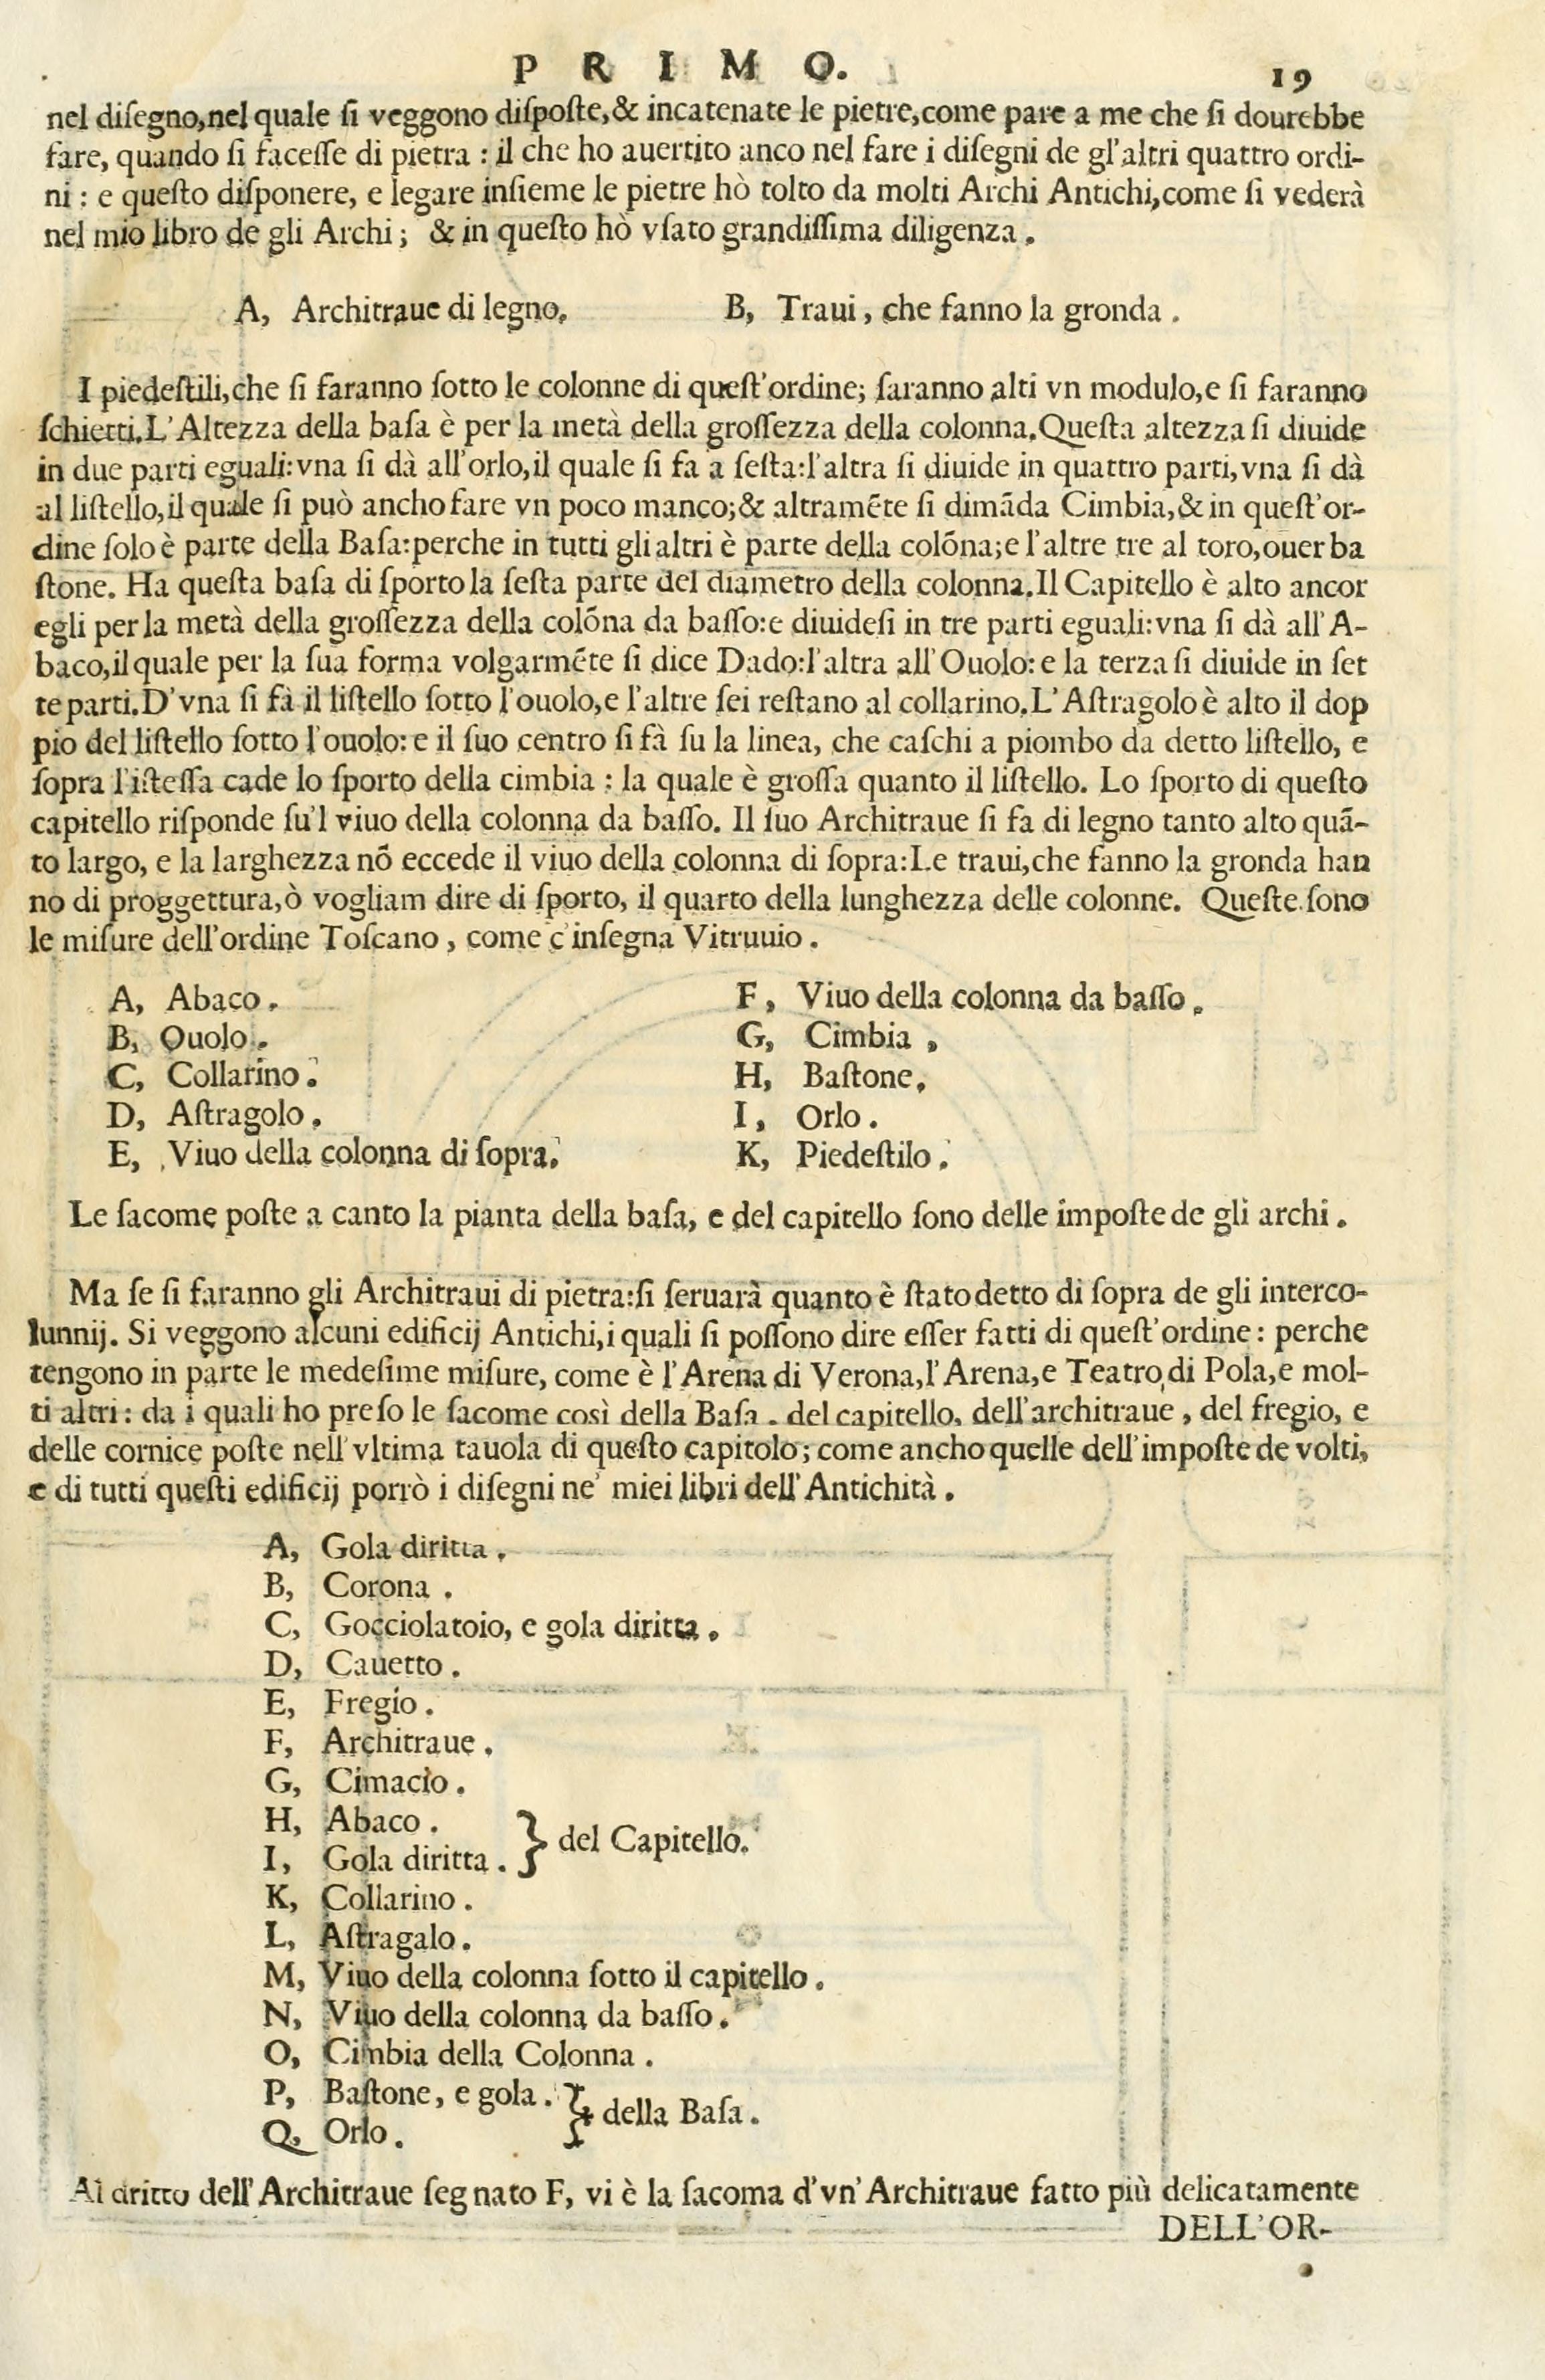 PRIMO. 19
nel diſegno,nel quale ſi veggono diſpoſte,& incatenate le pietre,come pare a me che ſi dourebbe
fare, quando ſi faceſſe di pietra : il che ho auertito anco nel fare i diſegni de gl'altri quattro ordi-
ni : e queſto diſponere, e legare inſieme le pietre hò tolto da molti Archi Antichi,come ſi vederà
nel mio libro de gli Archi ; & in queſto hò vſato grandiſſima diligenza .
A, Architraue di legno. B, Traui , che fanno la gronda .
I piedeſtili,che ſi faranno ſotto le colonne di queſt'ordine; ſaranno alti vn modulo,e ſi faranno
ſchietti.L'Altezza della baſa è per la metà della groſſezza della colonna.Queſta altezza ſi diuide
in due parti eguali:vna ſi dà all'orlo,il quale ſi fa a ſeſta:l'altra ſi diuide in quattro parti,vna ſi dà
al liſtello,il quale ſi può ancho fare vn poco manco;& altramēte ſi dimāda Cimbia,& in queſt'or-
dine ſolo è parte della Baſa:perche in tutti gli altri è parte della colōna;e l'altre tre al toro,ouer ba
ſtone. Ha queſta baſa di ſporto la ſeſta parte del diametro della colonna.Il Capitello è alto ancor
egli per la metà della groſſezza della colōna da baſſo:e diuideſi in tre parti eguali:vna ſi dà all'A-
baco,il quale per la ſua forma volgarmēte ſi dice Dado:l'altra all'Ouolo: e la terza ſi diuide in ſet
te parti.D'vna ſi fà il liſtello ſotto l'ouolo,e l'altre ſei reſtano al collarino.L'Aſtragolo è alto il dop
pio del liſtello ſotto l'ouolo: e il ſuo centro ſi fà ſu la linea, che caſchi a piombo da detto liſtello, e
ſopra l'iſteſſa cade lo ſporto della cimbia : la quale è groſſa quanto il liſtello. Lo ſporto di queſto
capitello riſponde ſu'l viuo della colonna da baſſo. Il ſuo Architraue ſi fa di legno tanto alto quā-
to largo, e la larghezza nō eccede il viuo della colonna di ſopra:Le traui,che fanno la gronda han
no di proggettura,ò vogliam dire di ſporto, il quarto della lunghezza delle colonne. Queſte ſono
le miſure dell'ordine Toſcano , come c'inſegna Vitruuio .
A, Abaco . F, Viuo della colonna da baſſo .
B, Ouolo . G, Cimbia ,
C, Collarino . H, Baſtone,
D, Aſtragolo . I, Orlo .
E, Viuo della colonna di ſopra. K, Piedeſtilo .
Le ſacome poſte a canto la pianta della baſa, e del capitello ſono delle impoſte de gli archi .
Ma ſe ſi faranno gli Architraui di pietra:ſi ſeruarà quanto è ſtato detto di ſopra de gli interco-
lunnij. Si veggono alcuni edificij Antichi,i quali ſi poſſono dire eſſer fatti di queſt'ordine : perche
tengono in parte le medeſime miſure, come è l'Arena di Verona,l'Arena,e Teatro di Pola,e mol-
ti altri : da i quali ho preſo le ſacome così della Baſa . del capitello, dell'architraue , del fregio, e
delle cornice poſte nell'vltima tauola di queſto capitolo; come ancho quelle dell'impoſte de volti,
e di tutti queſti edificij porrò i diſegni ne' miei libri dell'Antichità .
A, Gola diritta .
B, Corona .
C, Gocciolatoio, e gola diritta .
D, Cauetto .
E, Fregio .
F, Architraue .
G, Cimacio .
H, Abaco .
I, Gola diritta . } del Capitello.
K, Collarino .
L, Aſtragalo .
M, Viuo della colonna ſotto il capitello .
N, Viuo della colonna da baſſo .
O, Cimbia della Colonna .
P, Baſtone, e gola . } della Baſa .
Q, Orlo .
Al dritto dell'Architraue ſegnato F, vi è la ſacoma d'vn'Architraue fatto più delicatamente
DELL'OR-